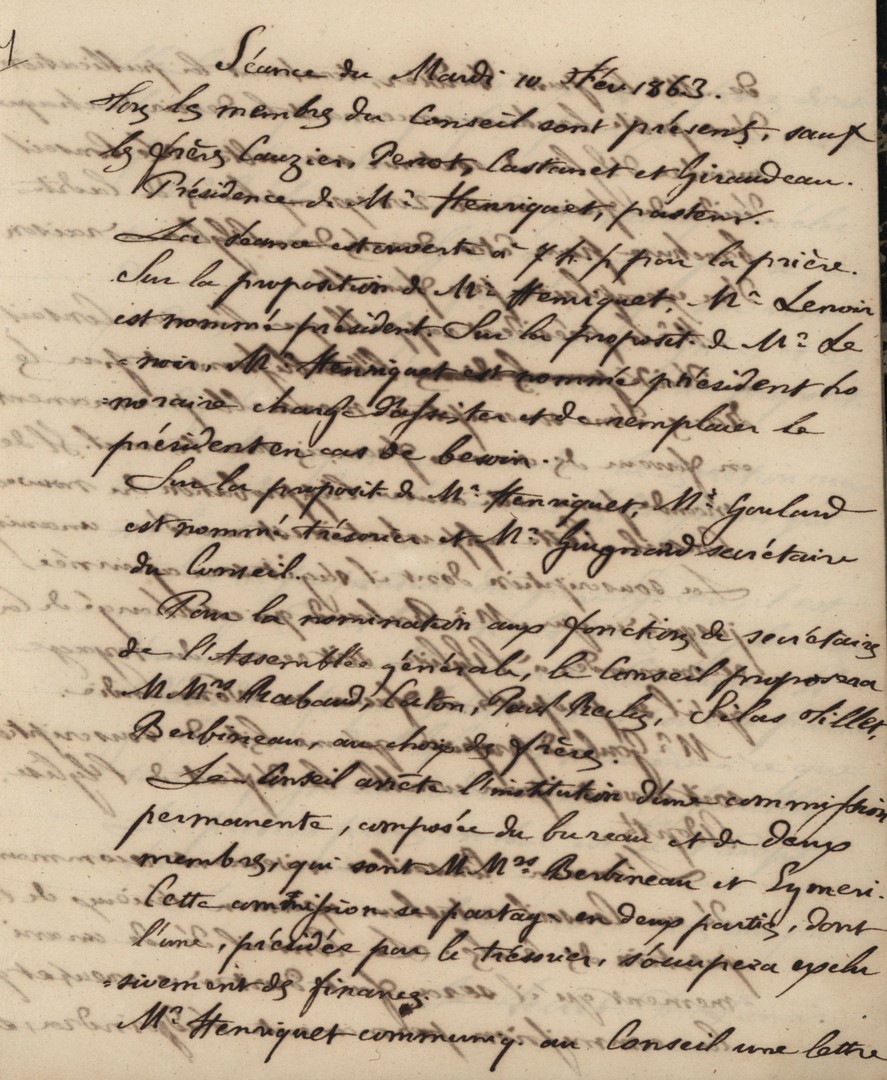 Séance du Mardi 10 Fév. 1863.
Tous les membres du Conseil sont présents, sauf
les frères Cauzier, Penot, Castanet et Giraudeau.
Présidence de Mr. Henriquet, pasteur.
La séance est ouverte à 7 h. p par la prière.
Sur la proposition de Mr. Henriquet, Mr. Lenoir
est nommé président. Sur la proposit. de Mr. Le
=noir, Mr. Henriquet est nommé président ho
=noraire chargé d'assister et de remplacer le
président en cas de besoin.
Sur la proposit de Mr. Henriquet, Mr. Goulard
est nommé trésorier et Mr. Guignard secrétaire
du Conseil.
Pour la nomination aux fonctions de secrétaires
de l'Assemblée générale, le Conseil proposera
M Mrs Rabaud, Caton, Paul, Silas Tillet,
Berbineau, au choix des frères.
Le Conseil arrête l'institution d'une commission
permanente, composée du bureau et de deux
membres, qui sont M Mrs Berbineau et Eymeri.
Cette commission se partage en deux parties, dont
l'une, présidée par le trésorier, s'occupera exclu
=sivement des finances.
Mr. Henriquet communiq. au Conseil une lettre